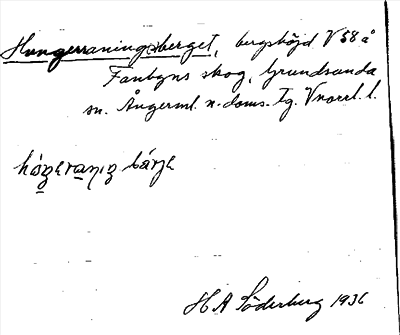 Hungerraningsberget, bergshöjd V 58 å
Fanbyns skog, Grundsunda
sn. Ångerml. n. doms. tg. Vnorrl. l.
bärje
H A Söderberg 1936